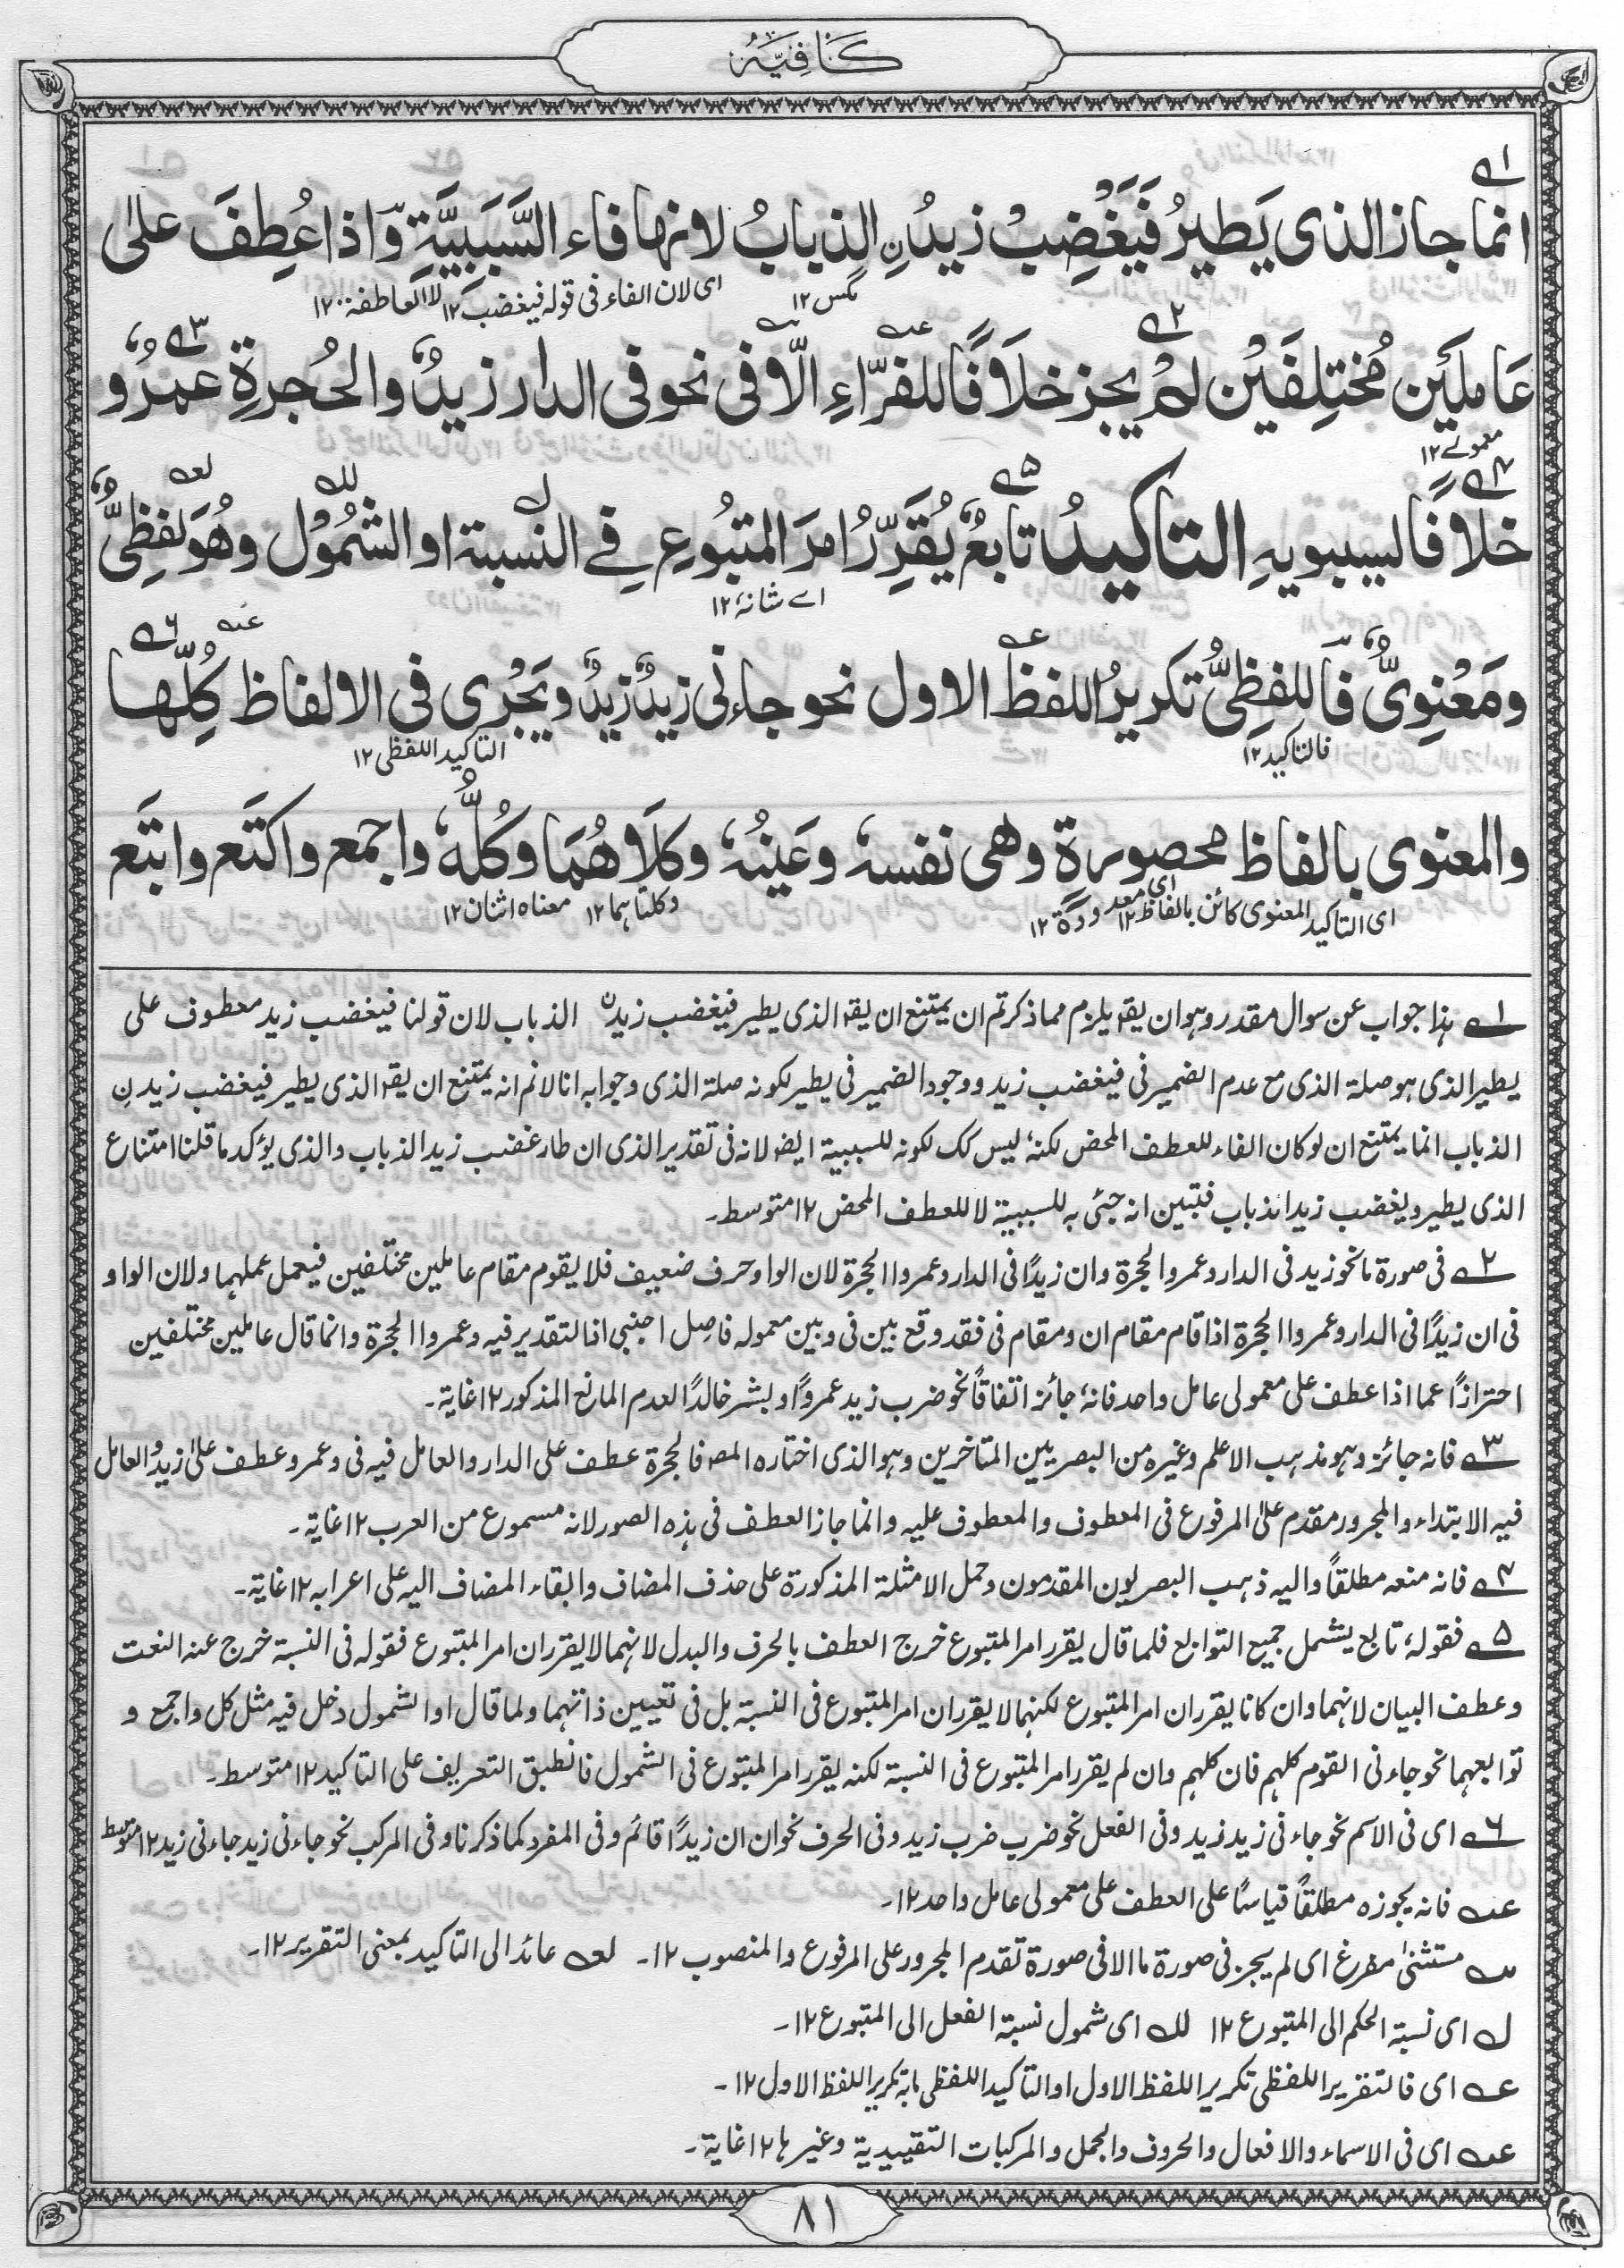 كَافِيَه
۱
انما جاز الذى يَطيرُ فَيَغْضِبُ زيدُنِ الذبابُ لانها فاء السَّبَبِيَّةِ وَاذا عُطِفَ على
مگس ۱۲ اى لان الفاء فى قوله فيغضب ۱۲ لا العاطفة ۱۲
عَامِلَيْن مُختِلِفَيْن لَمْ يجز خلَافًا للفرّاءِ الّا فى نحو فى الدار زيدٌ والحُجرةِ عمرٌو
معمولے ۱۲
خلافًا لسيبويهِ التاكيدُ تابعٌ يُقَرِّرُ امرَ المتبُوعِ فے النسبة او الشمُوْل وهُوَ لفظِىٌّ
اے شانه ۱۲
ومَعْنوِىٌّ فَاللفظِىُّ تكريرُ اللفظ الاول نحو جاءنى زيدٌ زيدٌ ويَجْرِى فى الالفاظ كُلِّها
فالتاكيد ۱۲ التاكيد اللفظى ۱۲
والمعنوى بالفاظ محصورة وهى نفسهٗ وعَينُهٗ وكلَاهُمَا وكُلُّهٗ واجمع واكتَع وابتَع
اى التاكيد المعنوى كائن بالفاظ ۱۲ اى معدودة ۱۲ وكلتاهما ۱۲ معناه اثنان ۱۲
۱ هذا جواب عن سوال مقدر وهو ان يقه يلزم مما ذكرتم ان يمتنع ان يقه الذى يطير فيغضب زيدن الذباب لان قولنا فيغضب زيد معطوف على
يطير الذى هو صلة الذى مع عدم الضمير فى فيغضب زيد ووجود الضمير فى يطير لكونه صلة الذى وجوابه انا لا نم انه يمتنع ان يقه الذى يطير فيغضب زيدنِ
الذباب انما يمتنع ان لو كان الفاء للعطف المحض لكنهٗ ليس كك لكونه للسببية ايضا لانه فى تقدير الذى ان طار غضب زيد الذباب والذى يؤكد ما قلنا امتناع
الذى يطير ويغضب زيد الذباب فتبين انه جئى به للسببية لا للعطف المحض ۱۲ متوسط۔
۲ فى صورة ما نحو زيد فى الدار وعمرو الحجرة وان زيدًا فى الدار وعمروا الحجرة لان الواو حرف ضعيف فلا يقوم مقام عاملين مختلفين فيعمل عملهما ولان الواو
فى ان زيدًا فى الدار وعمروا الحجرة اذا قام مقام ان ومقام فى فقد وقع بين فى وبين معموله فاصل اجنبى اذ التقدير فيه وعمروا الحجرة وانما قال عاملين مختلفين
احترازًا عما اذا عطف على معمولى عامل واحد فانهٗ جائز اتفاقًا نحو ضرب زيد عمروًا وبشر خالدًا لعدم المانع المذكور ۱۲ غاية۔
۳ فانه جائز وهو مذهب الاعلم وغيره من البصريين المتاخرين وهو الذى اختاره المص فالحجرة عطف على الدار والعامل فيه فى وعمرو عطف علىٰ زيدٌ والعامل
فيه الابتداء والمجرور مقدم علىٰ المرفوع فى المعطوف والمعطوف عليه وانما جاز العطف فى هذه الصور لانه مسموع من العرب ۱۲ غاية۔
۴ فانه منعه مطلقًا واليه ذهب البصريون المقدمون وحمل الامثلة المذكورة على حذف المضاف وابقاء المضاف اليه على اعرابه ۱۲ غاية۔
۵ فقولهٗ تابع يشمل جميع التوابع فلما قال يقرر امر المتبوع خرج العطف بالحرف والبدل لانهما لا يقرران امر المتبوع فقوله فى النسبة خرج عنه النعت
وعطف البيان لانهما وان كانا يقرران امر المتبوع لكنهما لا يقرران امر المتبوع فى النسبة بل فى تعيين ذاتهما ولما قال او الشمول دخل فيه مثل كل واجمع و
توابعهما نحو جاءنى القوم كلهم فان كلهم وان لم يقرر امر المتبوع فى النسبة لكنه يقرر امر المتبوع فى الشمول فانطبق التعريف على التاكيد ۱۲ متوسط۔
۶ اى فى الاسم نحو جاءنى زيد زيد وفى الفعل نحو ضرب ضرب زيد وفى الحرف نحو ان ان زيدًا قائم وفى المفرد كما ذكرنا وفى المركب نحو جاءنى زيد جاءنى زيد ۱۲ متوسط
عه فانه يجوزه مطلقًا قياسًا على العطف على معمولى عامل واحد ۱۲۔
مستثنىٰ مفرغ اى لم يجز فى صورة ما الا فى صورة تقدم المجرور على المرفوع والمنصوب ۱۲۔ لعه عائد الى التاكيد بمعنى التقرير ۱۲۔
ل اى نسبة الحكم الى المتبوع ۱۲ لك اى شمول نسبة الفعل الى المتبوع ۱۲۔
عه اى فالتقرير اللفظى تكرير اللفظ الاول او التاكيد اللفظى تكرير اللفظ الاول ۱۲۔
عه اى فى الاسماء والافعال والحروف والجمل والمركبات التقييدية وغيرها ۱۲ غاية۔
۸۱